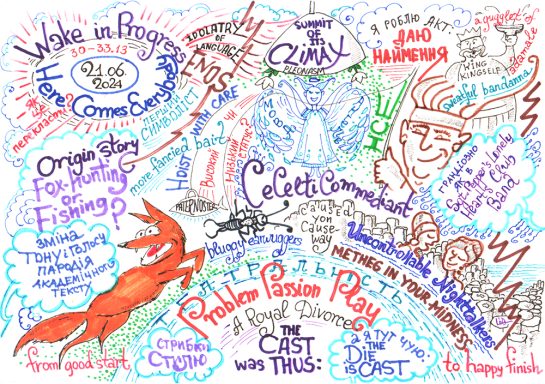 Wake in Progress
30-33.13
21.06.
2024
Here Comes Everybody
як це
перекласти?
IDOLATRY
OF
LANGUAGE
ENDS
ПЕРШИЙ
СИМВОЛІСТ
HOIST WITH CARE
more fancied bait?
ВИСОКИЙ
ЧИ
НИЗЬКИЙ
СТАТУС?
PATERNOSTER
SUMMIT
OF ITS
CLIMAX
PLEONASM
HCE
Я РОБЛЮ АКТ:
ДАЮ
НАЙМЕННЯ
a gugglet of
KING
KINGSELF
sweatful bandanna
Origin story
Fox-hunting
or
Fishing?
ЗМІНА
ТОНУ і ГОЛОСУ
ПАРОДІЯ
АКАДЕМІЧНОГО
ТЕКСТУ
CeCelticommediant
bluggy earwuggers
caused
yon
causeway
ГРАНДІОЗНО
ЯК В
Sgt Pepper's Lonely
Hearts Club
Band
Uncontrollable Nighttalkers
METHEG IN YOUR MIDNESS
Problem Passion Play
A Royal Divorce
THE
CAST
was THUS:
СТРИБКИ
СТИЛЮ
а я ТУТ ЧУЮ:
THE
DIE
is CAST
from good start
to happy finish